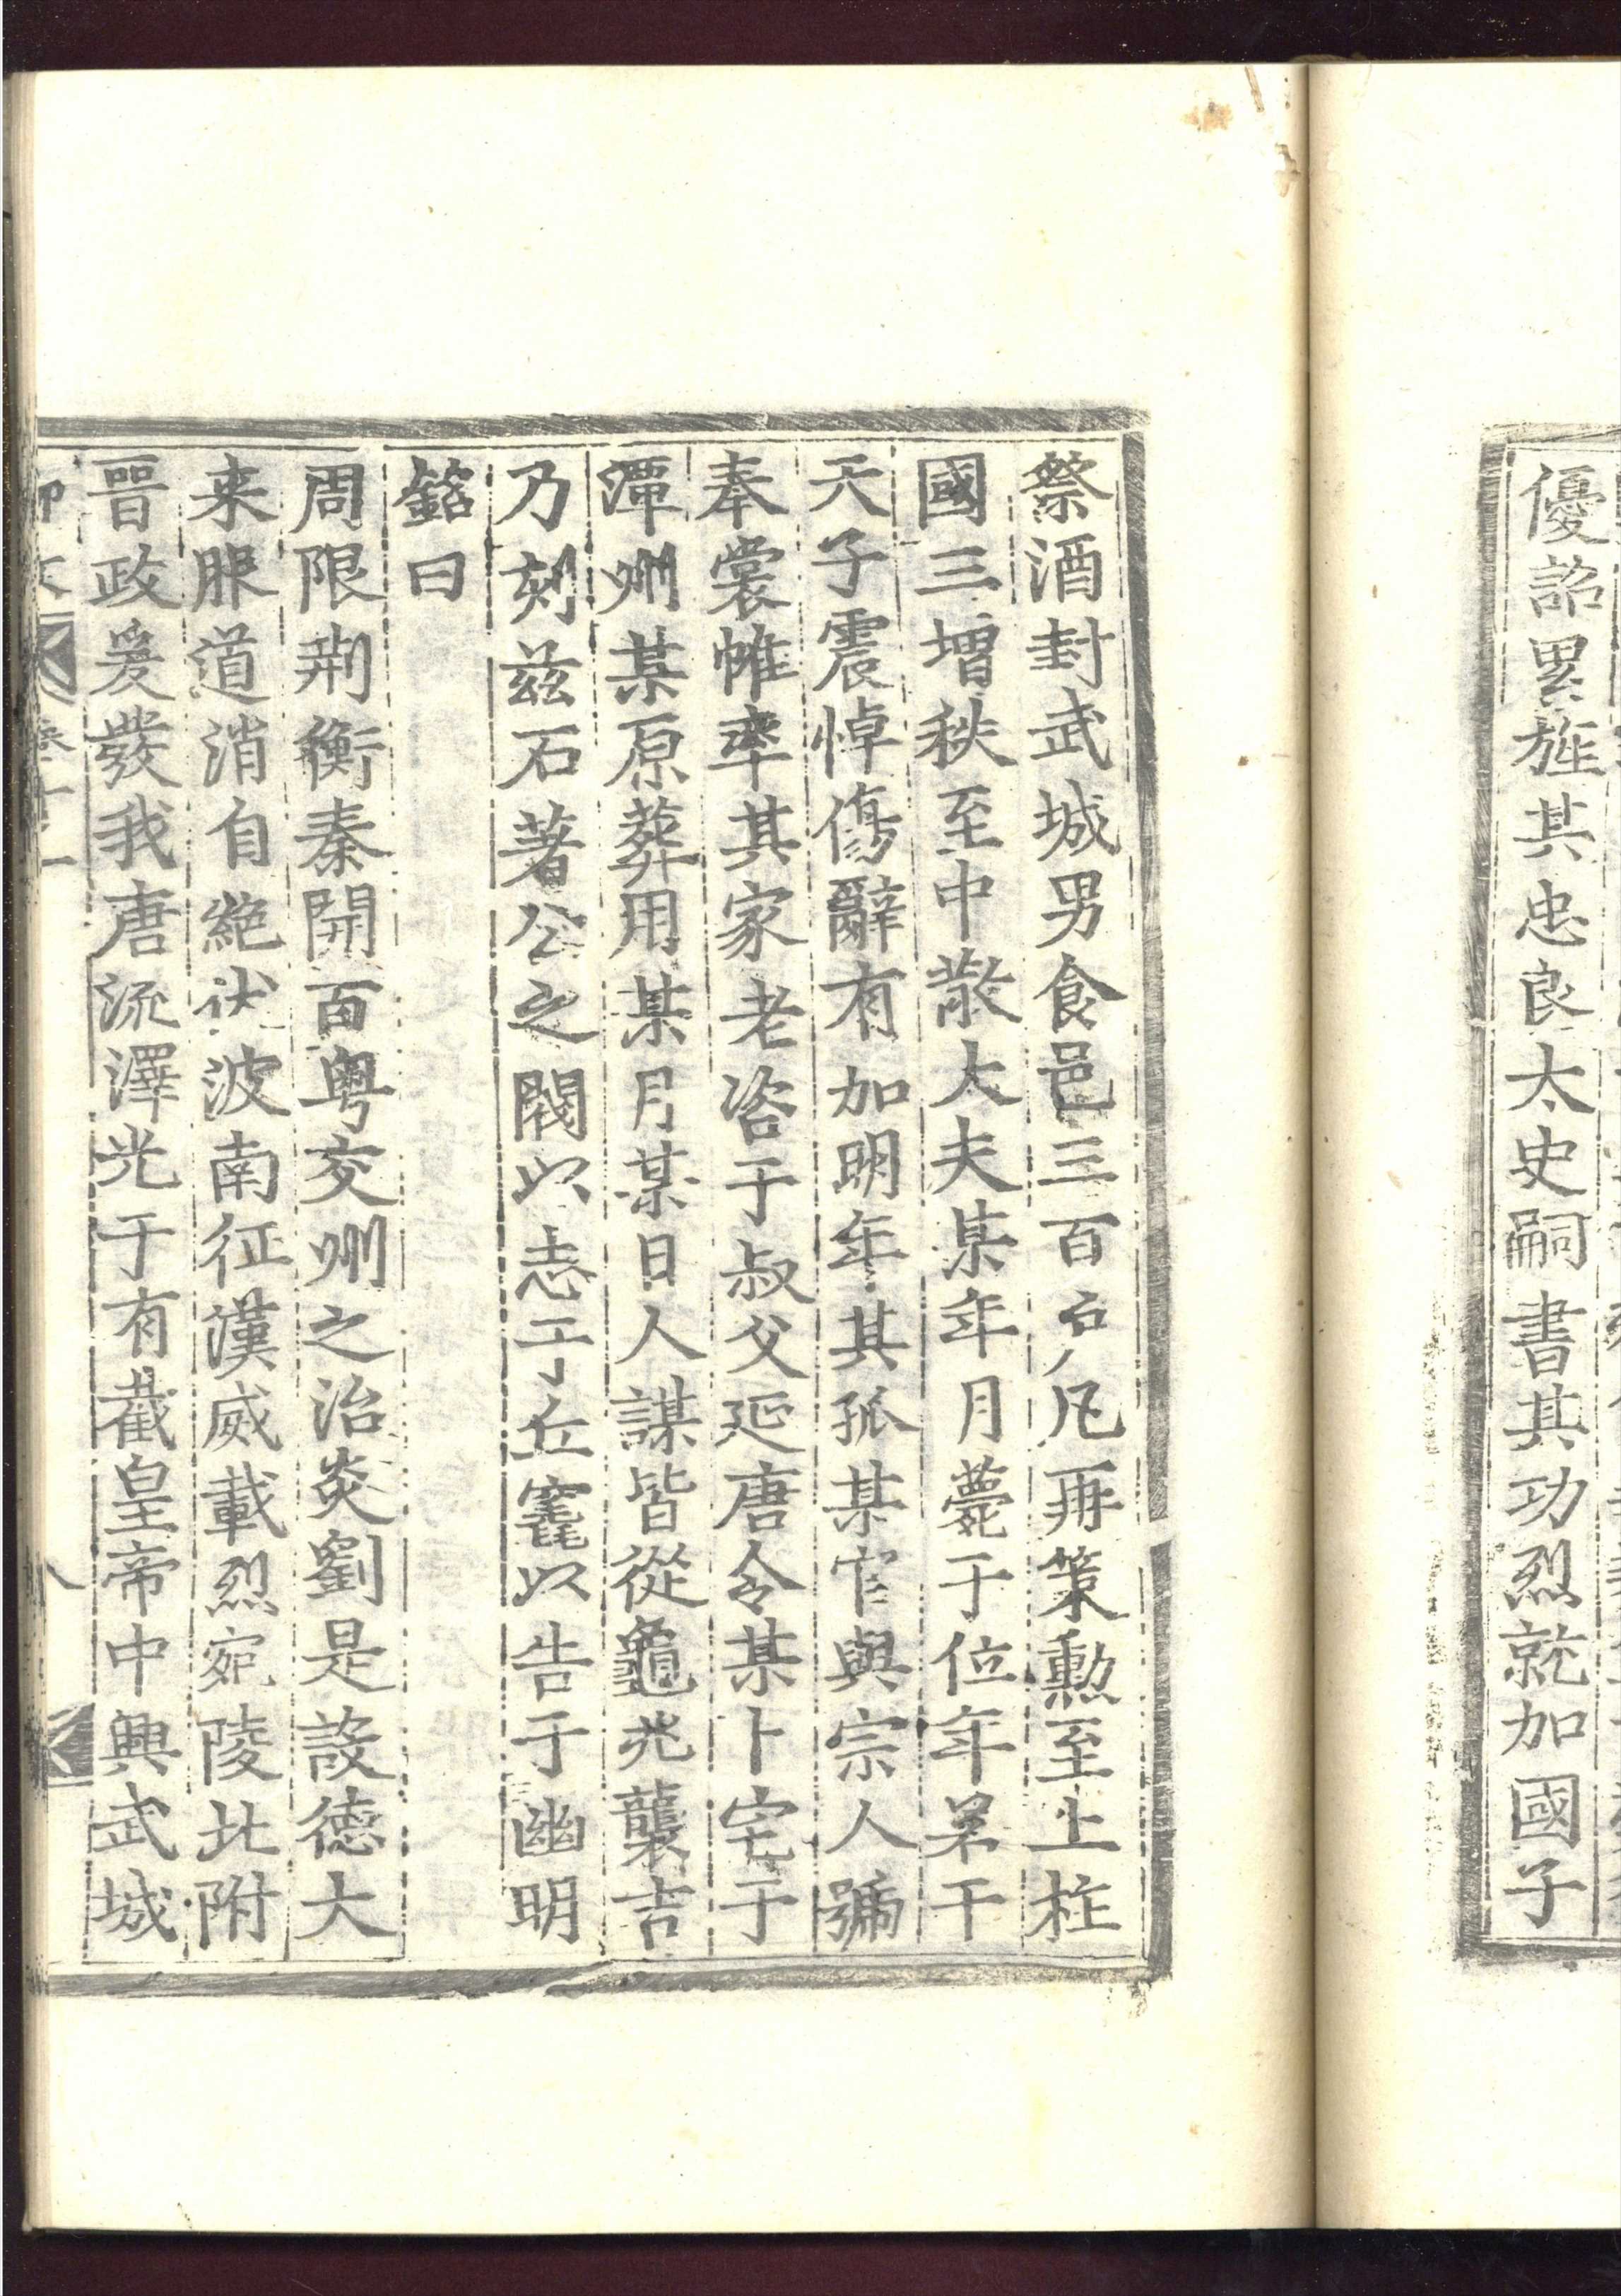 優詔累旌其忠良太史嗣書其功烈就加國子
祭酒封武城男食邑三百户凡再策勲至上柱
國三增秩至中散大夫某年月薨于位年若干
天子震悼傷辭有加明年其孤某官與宗人號
奉裳帷率其家老咨于叔父延唐令某卜宅于
潭州某原葬用某月某日人謀皆從龜兆襲吉
乃刻兹石著公之閥以志于丘窀以告于幽明
銘曰
周限荆衡秦開百粤交州之治炎劉是設德大
来服道消自絶伏波南征漢威載烈宛陵北附
晉政爰發我唐流澤光于有截皇帝中興武城